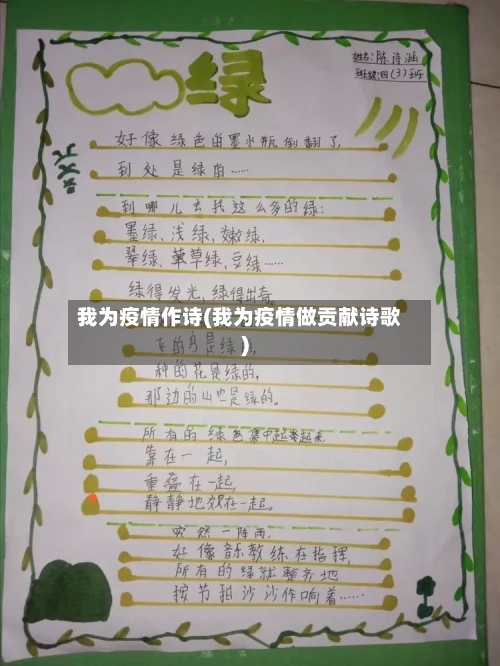 绿
姓名:陈诗涵
班级:四(3)班
好像绿色的墨水瓶倒翻了,
到处是绿的……
到哪儿去找这么多的绿:
墨绿、浅绿、嫩绿,
翠绿、草绿、豆绿……
绿得发光,绿得出奇。
我为疫情作诗(我为疫情做贡献诗歌
)
是绿
种的花是绿的,
那边的山也是绿的。
所有的绿色集中起来
靠在一起,
重叠在一起,
静静地放在一起。
突然一阵雨,
好像音乐教练在指挥,
所有的绿就整齐地
按节拍沙沙作响着……